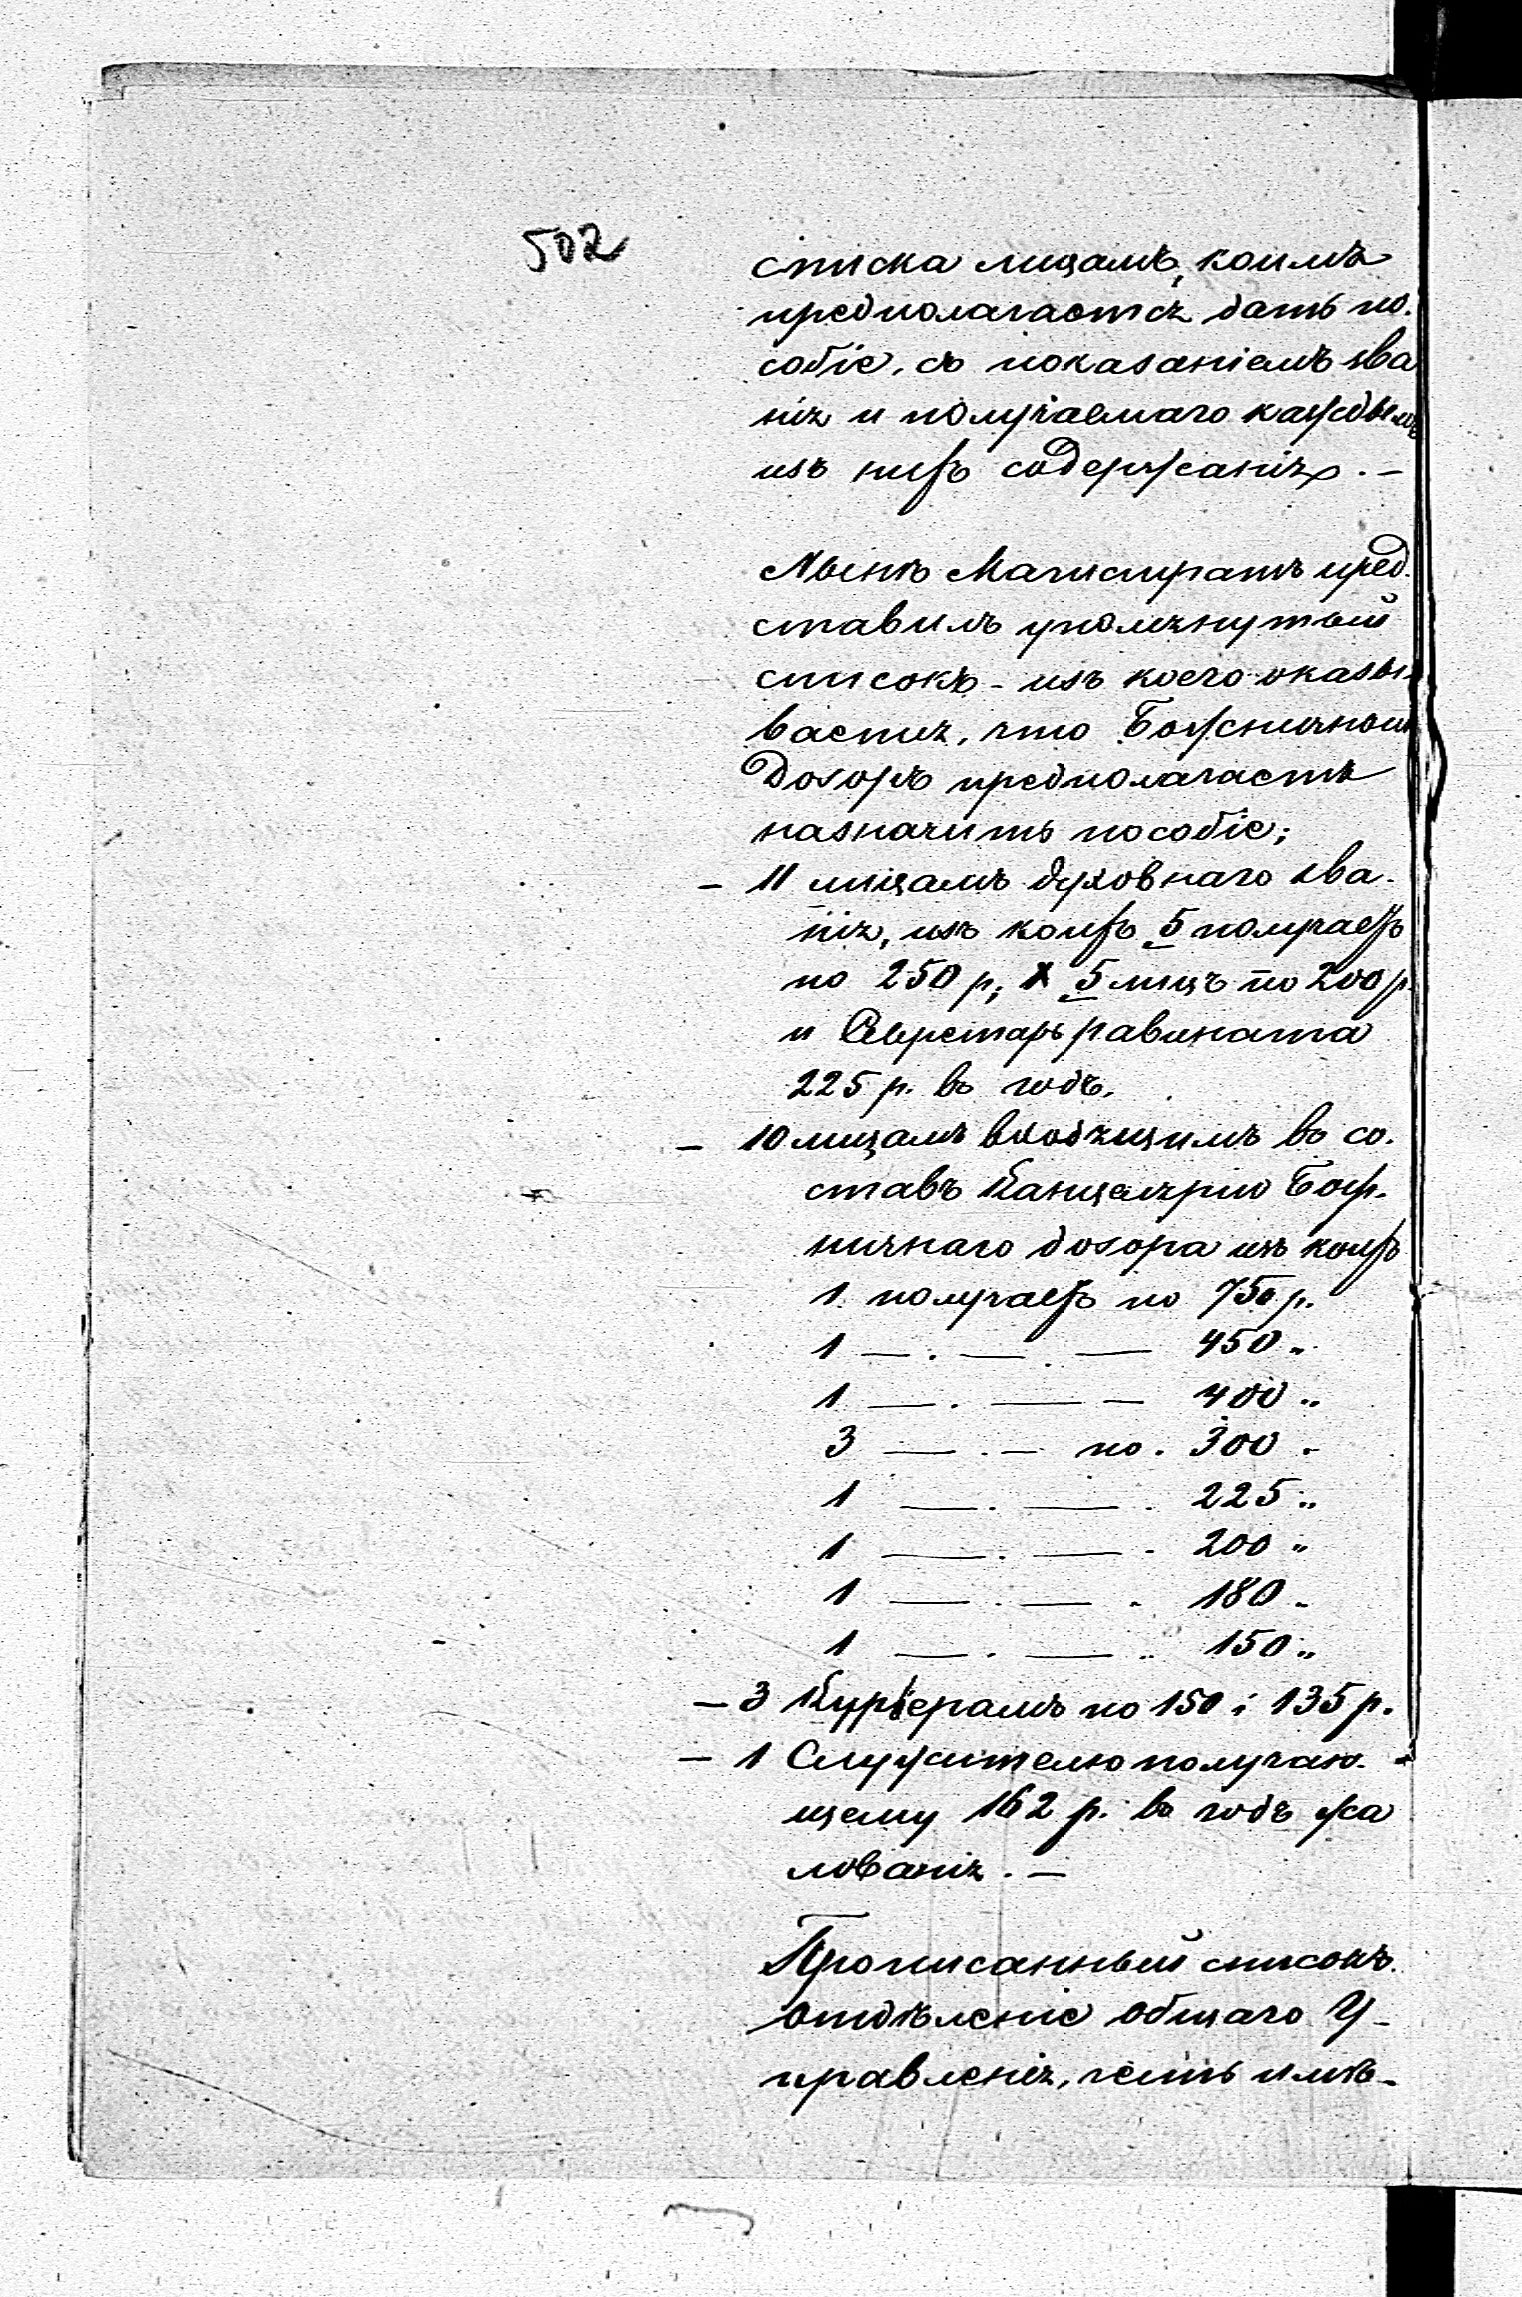 502
списка лицамъ, коимъ
предполагается дать по-
собіе, съ показаніемъ зва
нія и получаемаго каждымъ
изъ нихъ содержанія. —
Нынѣ Магистратъ пред-
ставилъ упомянутый
списокъ - изъ коего оказы-
вается, что Божничный
Дозоръ предполагаетъ
назначить пособіе;
— 11 лицамъ духовнаго зва-
нія, изъ коихъ 5 получаетъ
по 250 р; 5 лицъ по 200 р
и Секретарь равината
225 р. въ годъ.
— 10 лицамъ входящимъ въ со-
ставъ Канцеляріи Бож-
ничнаго дозора изъ коихъ
1 получаетъ по 750 р.
1 — . — . — 450 "
1 — . — — 400 "
3 — . — по . 300 "
1 — . — . 225 "
1 — . — . 200 "
1 — . — . 180 "
1 — . — " 150 "
— 3 Курьерамъ по 150 и 135 р.
— 1 Служителю получаю-
щему 162 р. въ годъ жа
лованія. —
Прописанный списокъ
отдѣленіе общаго У-
правленія, честь имѣ-